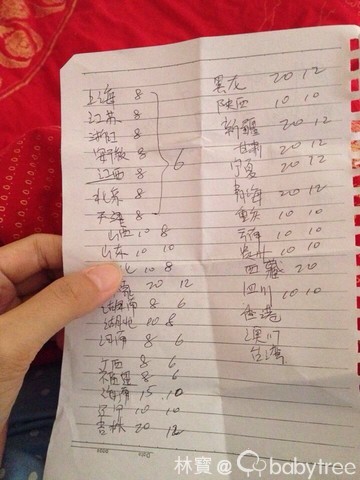 上海 8
江苏 8
浙江 8
安徽 8
江西 8
北京 8
天津 8
6
山西 10 8
山东 10 10
北 10 8
20 12
湖南 8 6
湖北 10 8
河南 8 6
广西 8 6
福建 8 6
海南 15 10
辽宁 10 10
吉林 20 12
黑龙 20 12
陕西 10 10
新疆 20 12
甘肃 20 12
宁夏 20 12
青海 20 12
重庆 10 10
云南 10 10
贵州 10 10
西藏 20
四川 10 10
香港
澳门
台湾
Date
林寶@babytree